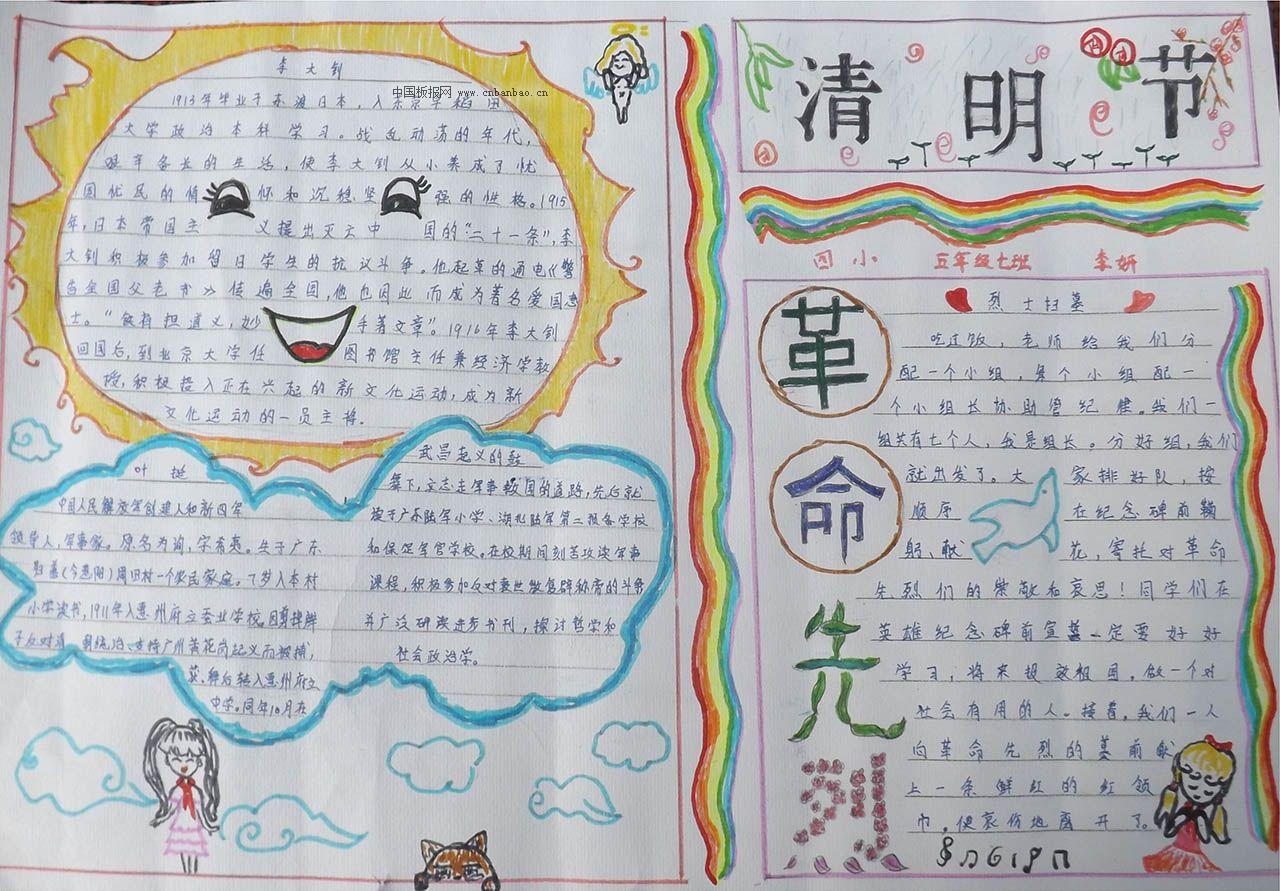 李大钊
中国板报网 www.cnbanbao.cn
1913年毕业于东渡日本，入东京早稻田
大学政治本科学习。战乱动荡的年代，
艰辛备长的生活，使李大钊从小养成了忧
国忧民的情怀和沉稳坚强的性格。1915
年，日本帝国主义提出灭亡中国的“二十一条”，李
大钊积极参加留日学生的抗议斗争。他起草的通电《警
告全国父老书》传遍全国，他也因此而成为著名爱国志
士。“铁肩担道义，妙手著文章”。1916年李大钊
回国后，到北京大学任图书馆主任兼经济学教
授，积极投入正在兴起的新文化运动，成为新
文化运动的一员主将。
叶挺
中国人民解放军创建人和新四军
领导人，军事家。原名为询，字希夷。生于广东
归善（今惠阳）周田村一个农民家庭。7岁入本村
小学读书，1911年入惠州府立蚕业学校。因剪掉辫
子反对清朝统治、支持广州黄花岗起义而被捕，
获释后转入惠州府立
中学。同年10月在
武昌起义的鼓
舞下，立志走军事救国的道路，先后就
读于广东陆军小学、湖北陆军第二预备学校
和保定军官学校。在校期间刻苦攻读军事
课程，积极参加反对袁世凯复辟称帝的斗争
并广泛研读进步书刊，探讨哲学和
社会政治学。
清明节
四小 五年级七班 李妍
革命先烈
烈士扫墓
吃过饭，老师给我们分
配一个小组，每个小组配一
个小组长协助管纪律。我们一
组共有七个人，我是组长。分好组，我们
就出发了。大家排好队，按
顺序在纪念碑前鞠
躬、献花，寄托对革命
先烈们的崇敬和哀思！同学们在
英雄纪念碑前宣誓一定要好好
学习，将来报效祖国，做一个对
社会有用的人。接着，我们一人
向革命先烈的墓前献
上一条鲜红的红领
巾。便哀伤地离开了。